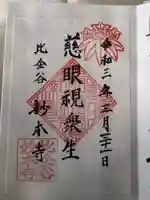 令和三年三月二十一日
慈眼視衆生
比企谷
妙本寺